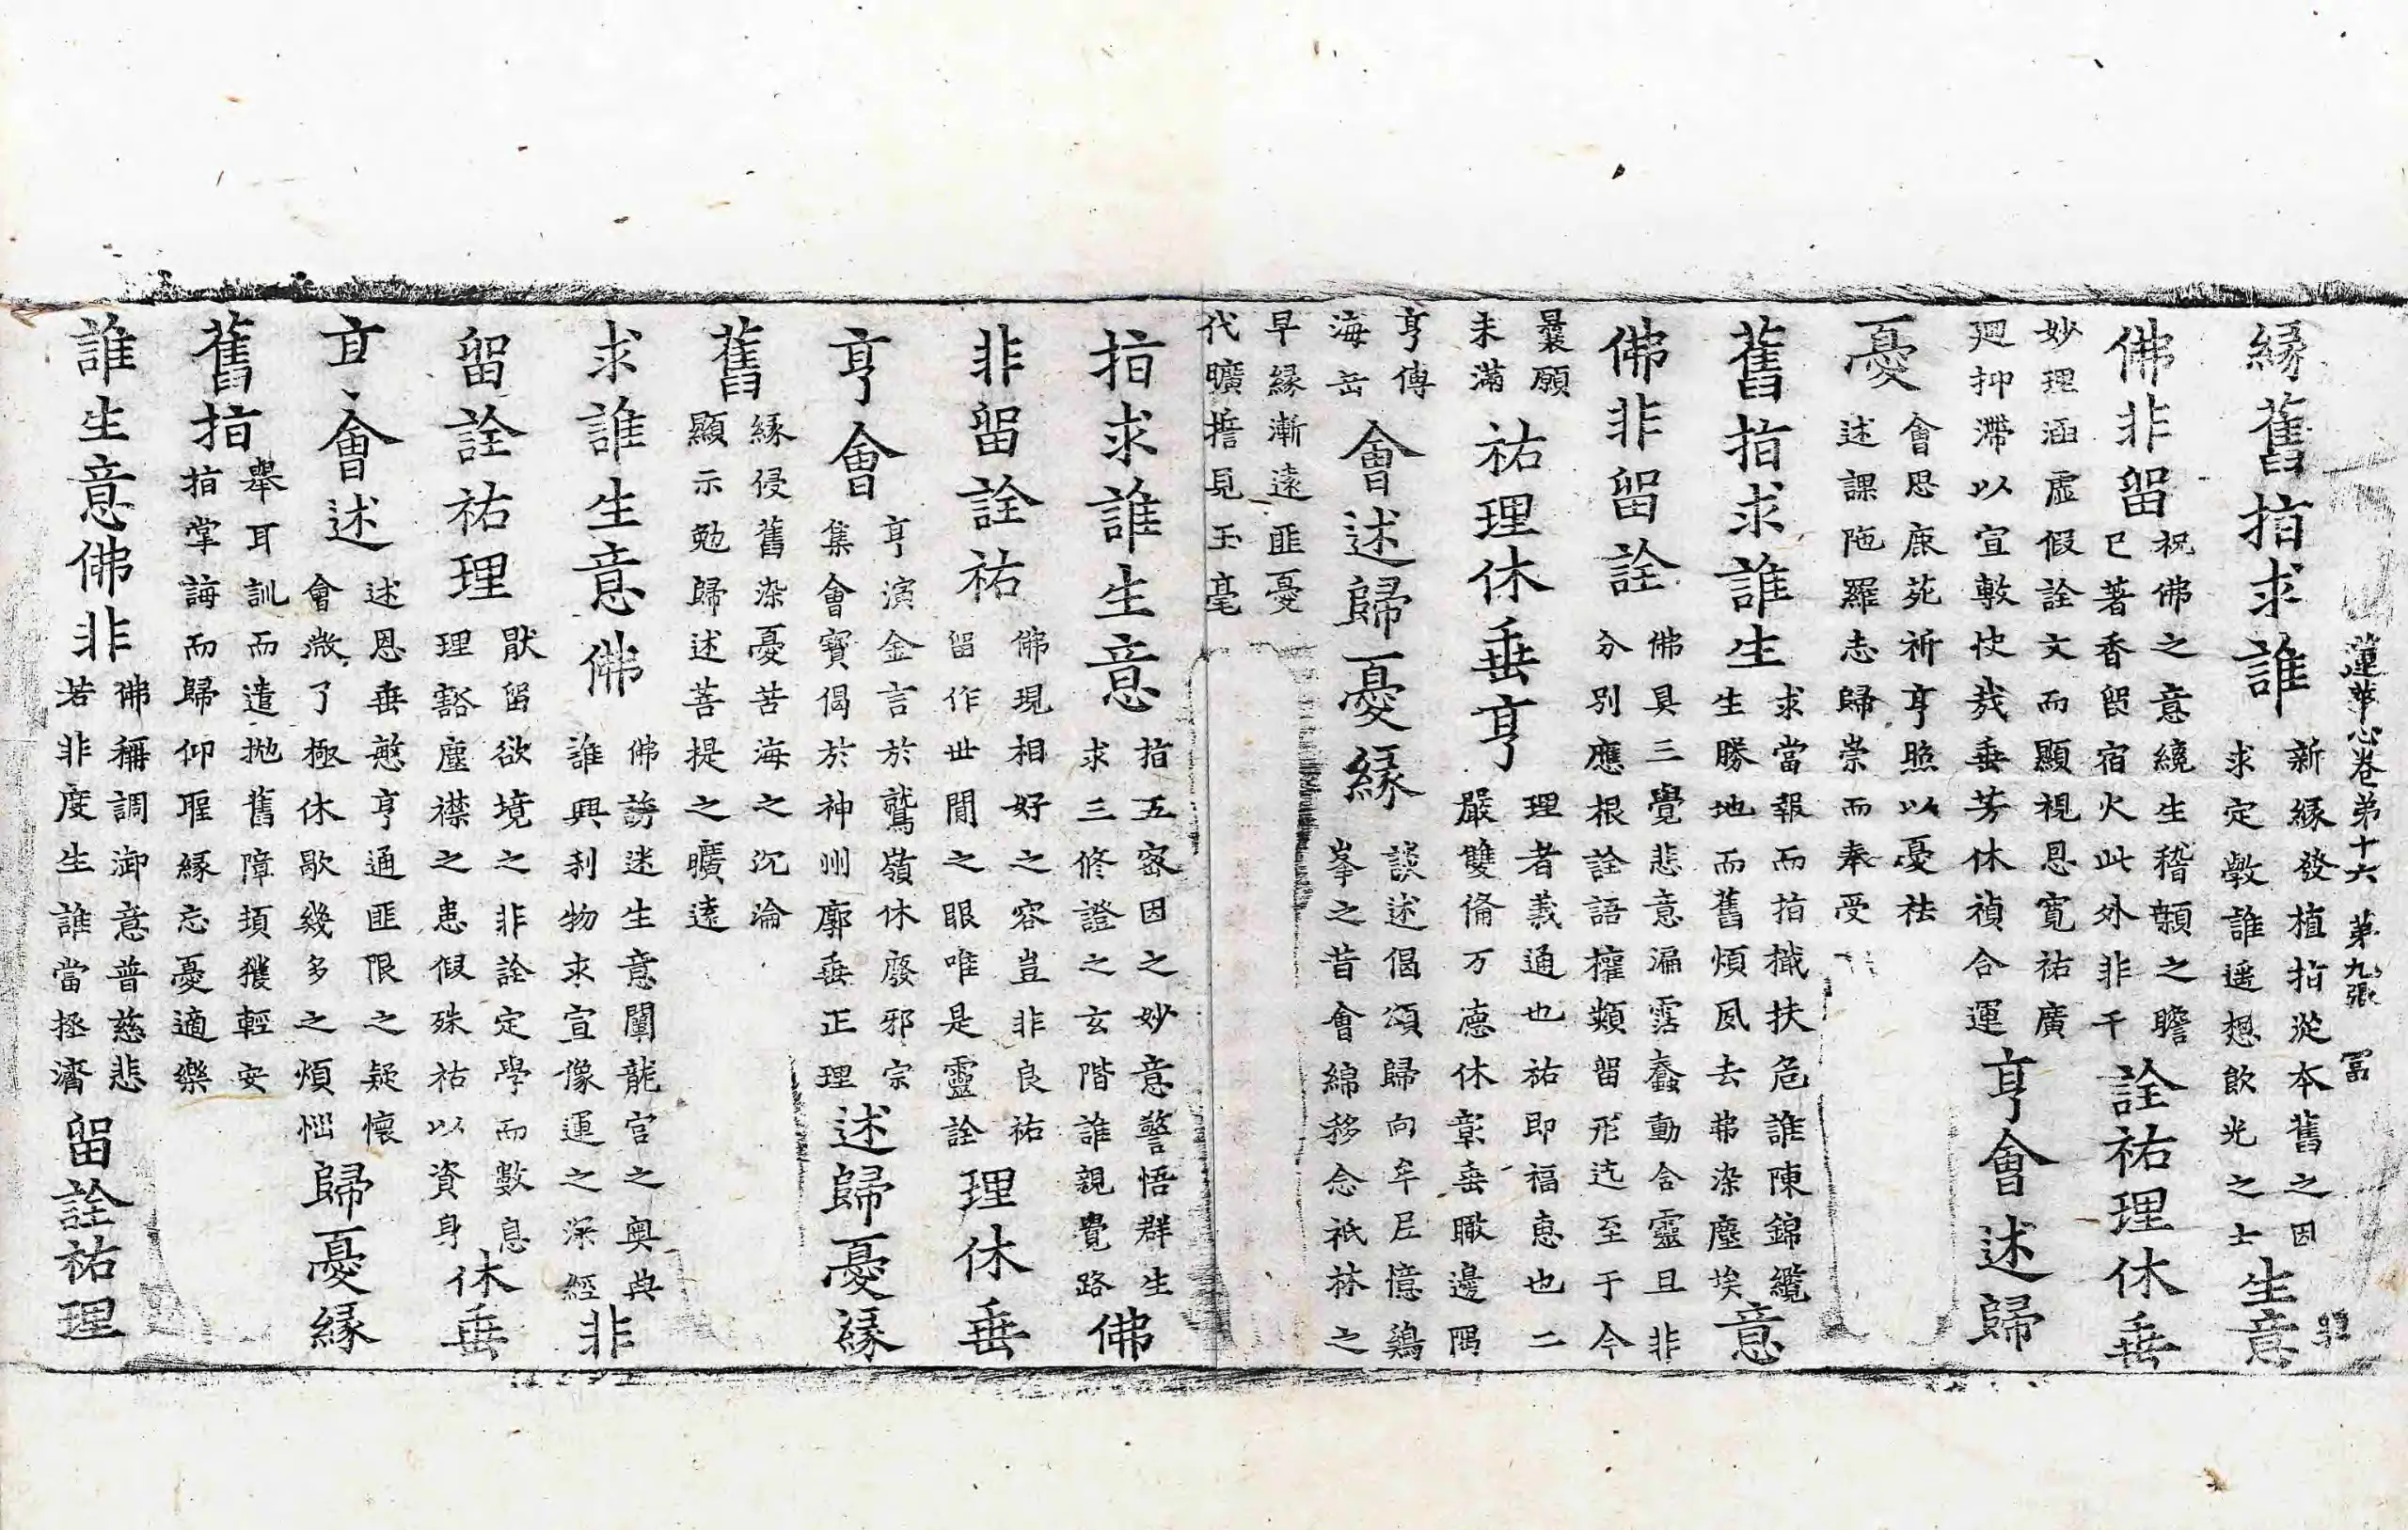 蓮華心卷第十六　第九張　冨
緣舊指求誰
新緣發植指從本舊之因
求定斆誰遥想飲光之士
生意
非
佛非留
祝佛之意繞生稽顙之瞻
已著香留宿火此外非千
詮祐理休垂
妙理涵虛假詮文而顯視恩寛祐廣
廻抑滯以宣敷使我垂芳休禎合運
亨會述歸
憂
會恩鹿苑祈亨照以憂祛
述課陁羅志歸崇而奉受
舊指求誰生
求當報而指檝扶危誰陳錦纜
生勝地而舊煩夙去弗染塵埃
意
佛非留詮
佛具三覺悲意漏霑蠢動含靈且非
分別應根詮語權類留形迄至于今
曩願
未滿
祐理休垂亨
理者義通也祐即福恵也二
嚴雙俻万德休彰垂瞰邊隅
亨傳
海岳
會述歸憂緣
談述偈頌歸向牟尼憶鷄
峯之昔會綿移念祇林之
早緣漸遠匪憂
代曠擔見玉毫
指求誰生意
指五宻因之妙意警悟群生
求三修證之玄階誰親覺路
佛
非留詮祐
佛現相好之容豈非良祐
留作世間之眼唯是靈詮
理休垂
亨會
亨演金言於鷲嶺休廢邪宗
集會寳偈於神州廓垂正理
述歸憂緣
舊
緣侵舊染憂苦海之沉淪
顯示勉歸述菩提之曠遠
求誰生意佛
佛誘迷生意闡龍宫之奧典
誰興利物求宣像運之深經
非
留詮祐理
猒留欲境之非詮定學而數息
理豁塵襟之患假殊祐以資身
休垂
亨會述
述恩垂慜亨通匪限之疑懷
會㳘了極休歇幾多之煩惱
歸憂緣
舊指
舉耳訓而遣抛舊障頊獲輕安
指掌誨而歸仰聖緣忘憂適樂
誰生意佛非
佛稱調御意普慈悲
若非度生誰當拯濟
留詮祐理